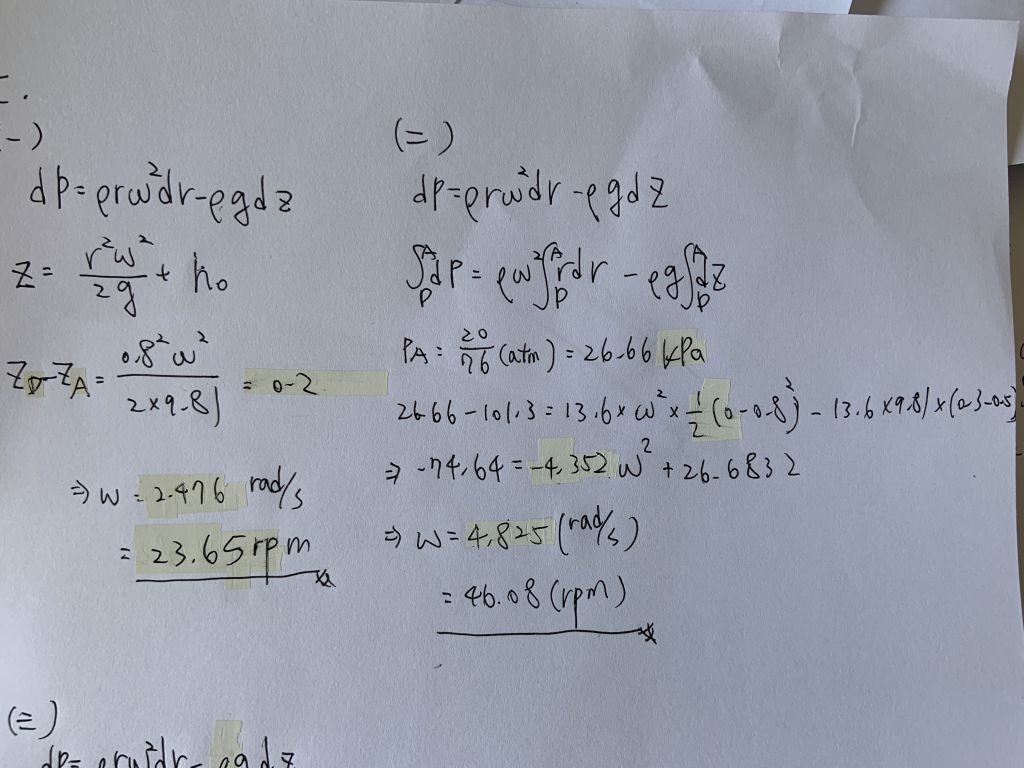 (一)
dp=ρrω²dr-ρgdz
z= r²ω²/2g + h₀
Z_D-Z_A= 0.8²ω²/2×9.81 = 0.2
⇒ ω = 2.476 rad/s
= 23.65 rpm
(二)
dp=ρrω²dr-ρgdz
∫_P^A dp = ρω²∫_P^A rdr - ρg∫_P^A dz
P_A = 20/76 (atm) = 26.66 kPa
26.66-101.3=13.6×ω²×1/2(0-0.8)²-13.6×9.81×(0.3-0.5)
⇒ -74.64=-4.352ω²+26.6832
⇒ ω=4.825(rad/s)
=46.08(rpm)
(三)
dp=ρrω²dr-ρgdz